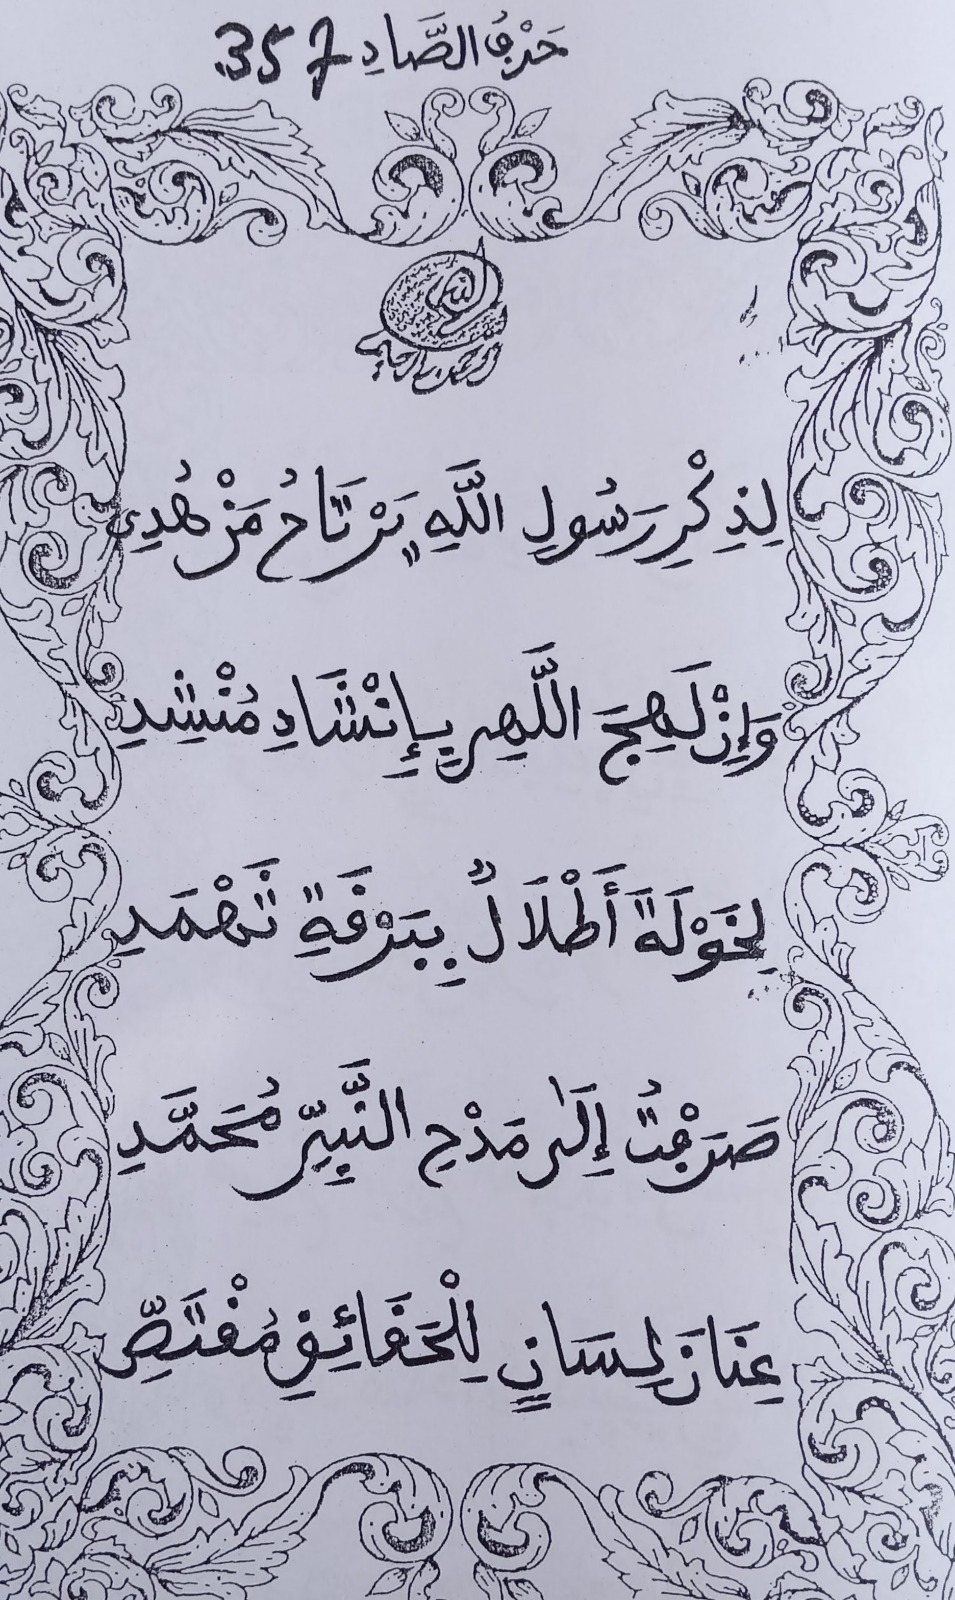 حَرْفُ الصَّادِ 357
الله
الرحمن الرحيم
لِذِكْرِ رَسُولِ اللَّهِ يَرْتَاحُ مَنْ هُدِي
وَإِنْ لَهِجَ اللَّاهِي بِإِنْشَادِ مُنْشِدِ
لِخَوْلَةَ أَطْلَالٌ بِبَرْقَةِ ثَهْمَدِ
صَرَفْتُ إِلَى مَدْحِ النَّبِيِّ مُحَمَّدِ
عِنَانَ لِسَانٍ لِلْحَقَائِقِ مُقْتَصِّ